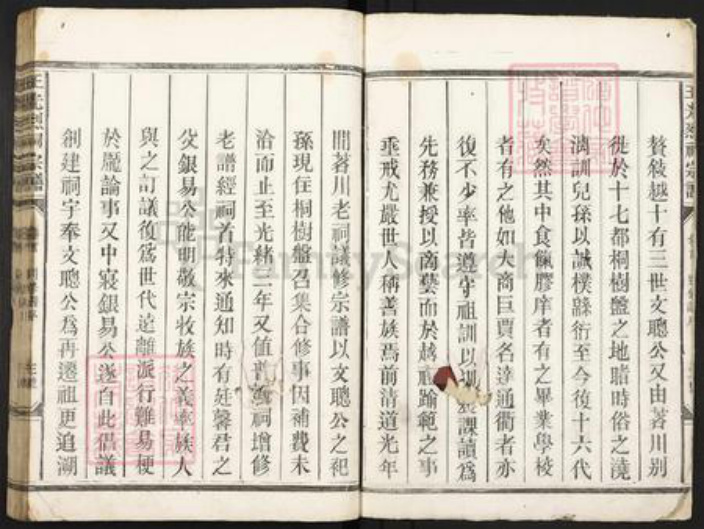 贅綾越十有三世文聰公又由荖川別
從於十七都桐樹盤之地睹時俗之澆
漓訓兒孫以誠樸繇衍至今後十六代
矣然其中食餼膠庠者有之畢業學校
者有之他如大商巨賈名達通衢者亦
復不少率皆遵守祖訓以訓課讀爲
先務兼授以商藝而於越祖踰範之事
垂戒尤嚴世人稱善族焉前清道光年
間荖川老祠議修宗譜以文聰公之祀
孫現住桐樹盤召集合修事因補費未
洽而止至光緒二年又值普祠增修
老譜經祠首特來通知時有廷馨君之
父銀易公能明敬宗收族之義率族人
與之訂議後爲世代遠離派行難易梗
於龐論事又中寢銀易公遂自此倡議
創建祠宇奉文聰公爲再遷祖更追溯
FamilySearch